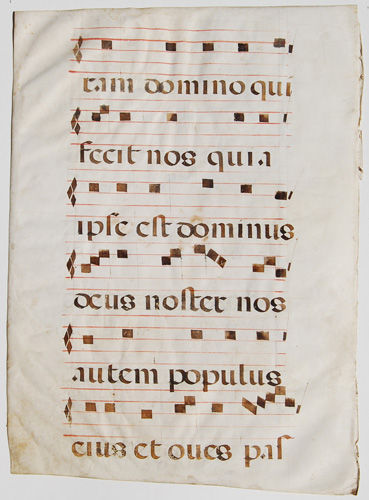 ram domino qui
fecit nos quia
ipſe eſt dominus
deus noſter nos
autem populus
eius et oues paſ